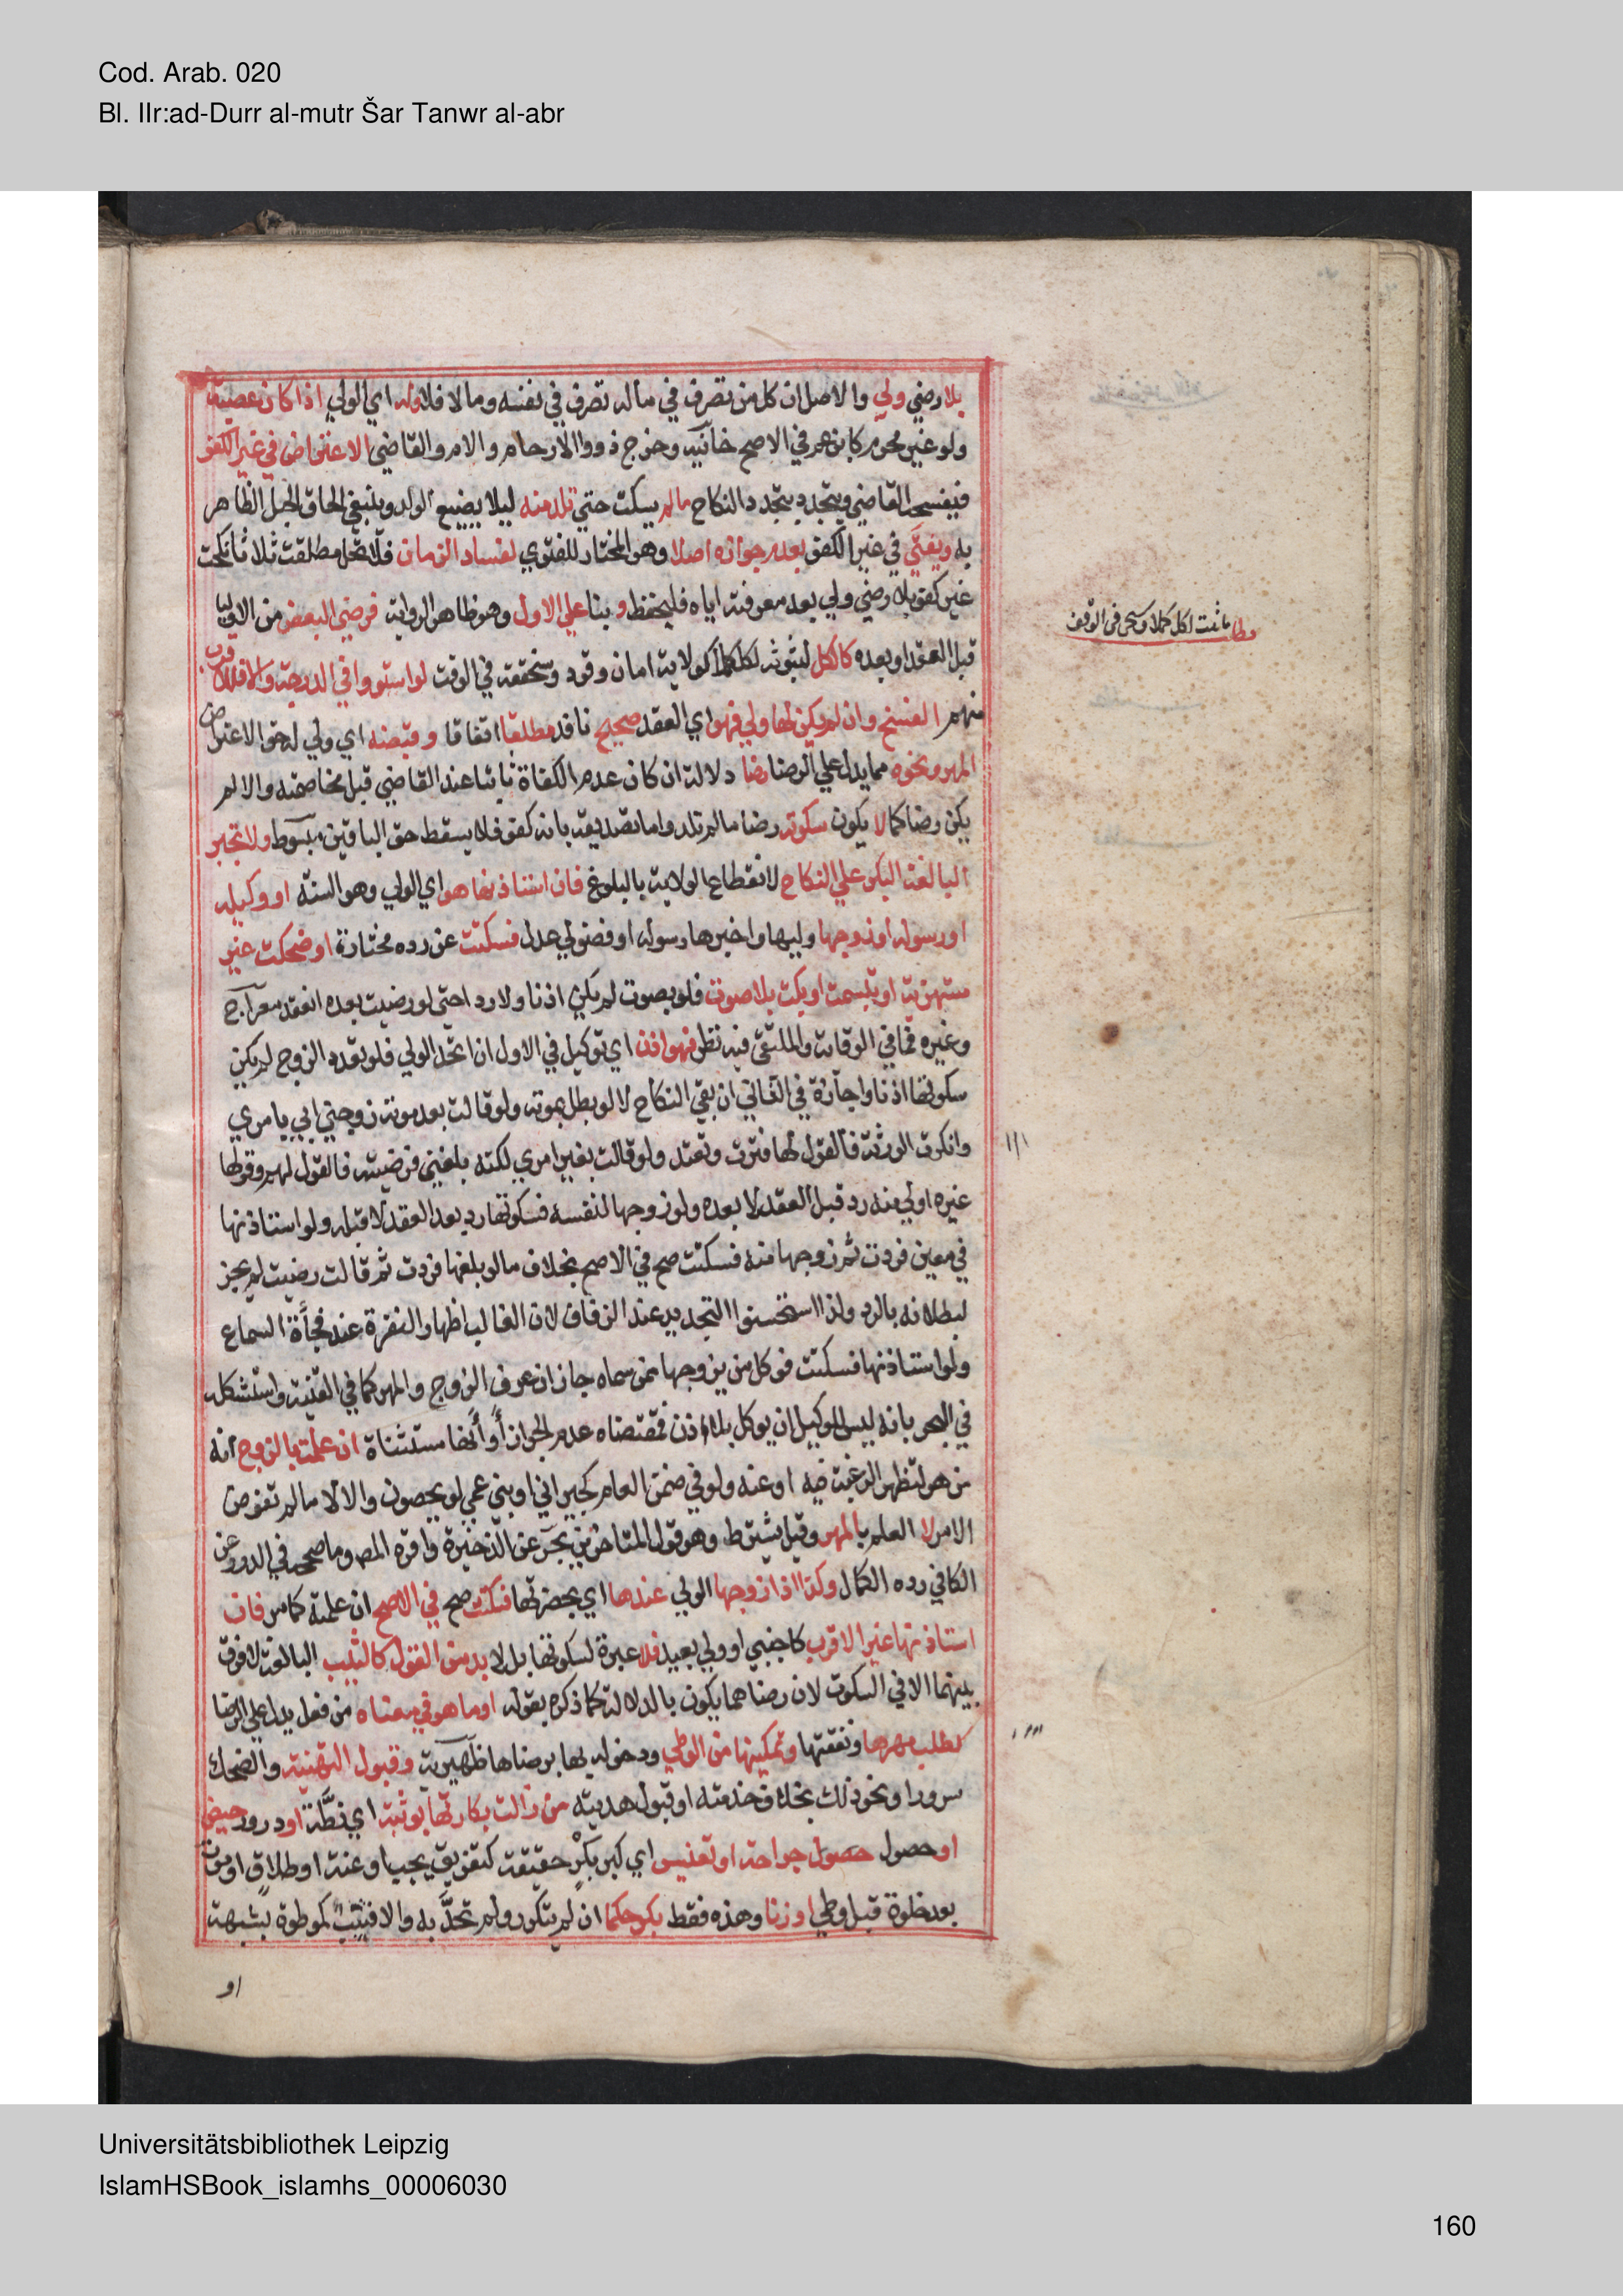 Cod. Arab. 020
Bl. IIr:ad-Durr al-mutr Šar Tanwr al-abr
بلا رضي ولي والاصل ان كل من تصرف في ماله تصرف في نفسه ومالا فلا وله اي الولي اذا كان عصبة
ولو غير محرم كابن عم في الاصح خانية وخرج ذووا الارحام والام والقاضي الاعتراض في غير الكفو
فيفسخه القاضي ويتجدد بتجدد النكاح مالم يسكت حتي تلد منه ليلا يضيع الولد وينبغي الحاق الحبل الظاهر
به ويفتي في غير الكفو بعدم جوازه اصلا وهو المختار للفتوي لفساد الزمان فلا تحل مطلقة ثلاثا نكحت
غير كفو بلا رضي ولي بعد معرفته اياه فليحفظ و بنا علي الاول وهو ظاهر الرواية فرضي البعض من الاوليا
قبل العقد او بعده كالكل لثبوته لكل كملا كولاية امان وقود وسنحققه في الوقف لو استووا في الدرجة والا فللاقرب
منهم الفسخ وان لم يكن لها ولي فهو اي العقد صحيح نافذ مطلقا اتفاقا وقبضه اي ولي له حق الاعتراض
المهر ونحوه مما يدل علي الرضا رضا دلالة ان كان عدم الكفاة ثابتا عند القاضي قبل مخاصمته والا لم
يكن رضا كما لا يكون سكوته رضا مالم تلد واما تصديقه بانه كفو فلا يسقط حق الباقين مبسوط ولا تجبر
البالغة البكر علي النكاح لانقطاع الولاية بالبلوغ فان استاذنها هو اي الولي وهو السنة او وكيله
او رسوله او زوجها وليها واخبرها رسوله او فضولي عدل فسكتت عن رده مختارة او ضحكت غير
مستهزية او تبسمت او بكت بلا صوت فلو بصوت لم يكن اذنا ولا ردا حتي لو رضيت بعده انعقد معراج
وغيره فما في الوقاية والملتقي فيه نظر فهو اذن اي توكيل في الاول ان اتحد الولي فلو تعدد الزوج لم يكن
سكوتها اذنا واجازة في الثاني ان بقي النكاح لا لو بطل بموته ولو قالت بعد موته زوجني ابي بامري
وانكرت الورثة فالقول لها فترث وتعتد ولو قالت بغير امري لكنه بلغني فرضيت فالقول لهم وقولها
غيره اولي منه رد قبل العقد لا بعده ولو زوجها لنفسه فسكوتها رد بعد العقد لا قبله ولو استاذنها
في معين فردت ثم زوجها منه فسكتت صح في الاصح بخلاف مالو بلغها فردت ثم قالت رضيت لم يجز
لبطلانه بالرد ولذا استحسنوا التجديد عند الزفاف لان الغالب اظهار النفرة عند فجأة السماع
ولو استاذنها فسكتت فوكل من يزوجها ممن سماه جاز ان عرف الزوج والمهر كما في القنية واستشكله
في البحر بانه ليس للوكيل ان يوكل بلا اذن فمقتضاه عدم الجواز أو أنها مستثناة ان علمت بالزوج انه
من هو لتظهر الرغبة فيه او عنه ولو في ضمن العام كجيراني او بني عمي لو يحصون والا لا مالم تفوض
الامر لا العلم بالمهر وقيل يشترط وهو قول المتاخرين بحر عن الذخيرة واقره المص وما صححه في الدرر عن
الكافي رده الكمال وكذا اذا زوجها الولي عندها اي بحضرتها فسكتت صح في الاصح ان علمته كما مر فان
استاذنها غير الاقرب كاجنبي او ولي بعيد فلا عبرة لسكوتها بل لا بد من القول كالثيب البالغة لا فرق
بينهما الا في السكوت لان رضاهما يكون بالدلالة كما ذكره بقوله او ما هو في معناه من فعل يدل علي الرضا
كطلب مهرها ونفقتها وتمكينها من الوطي ودخوله بها برضاها ظهيرية وقبول التهنية والضحك
سرورا ونحو ذلك بخلاف خدمته او قبول هديته من زالت بكارتها بوثبة اي نطّة او درور حيض
او حصول حصول جراحة او تعنيس اي كبر بكر حقيقة كتفريق بجب او عنة او طلاق او موت
بعد خلوة قبل وطي او زنا وهذه فقط بكر حكما ان لم يتكرر ولم تحدّ به والا فثيب كموطوة بشبهة
او
مطلب ما ثبت لكل كملا وسيجي في الوقف
Universitätsbibliothek Leipzig
IslamHSBook_islamhs_00006030
160